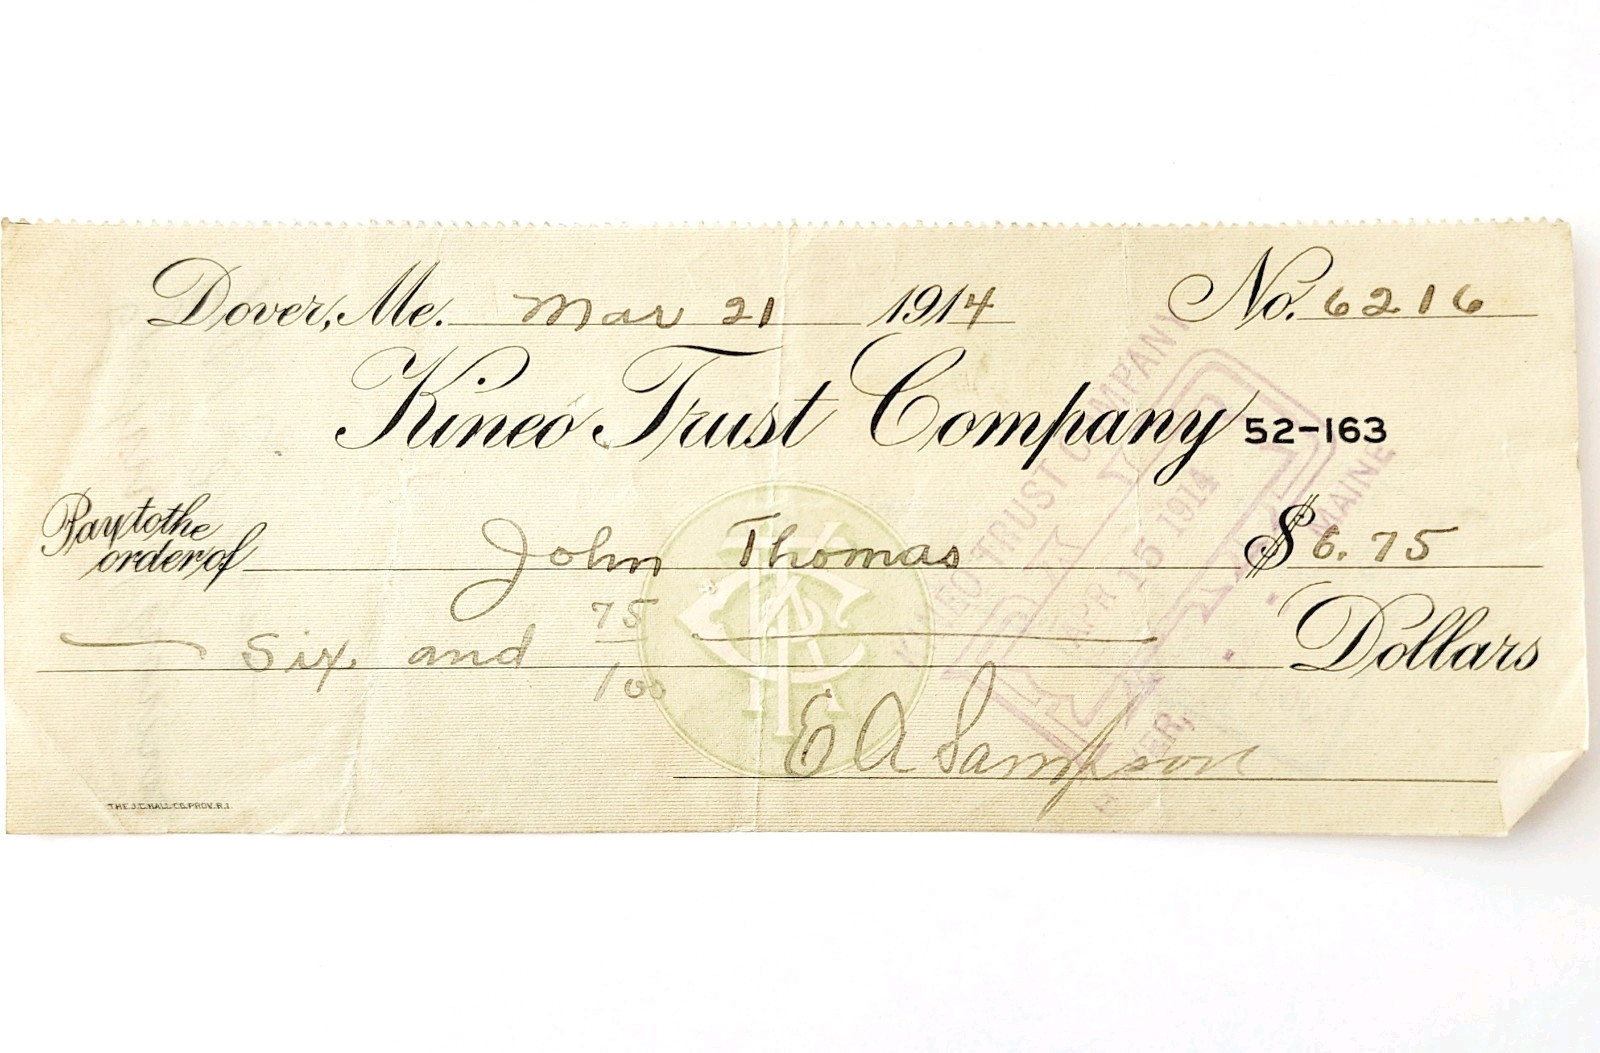 Dover, Me. Mar 21 1914 No. 6216
Kineo Trust Company 52-163
Pay to the
order of John Thomas $6.75
Six and 75/100 Dollars
E A Sampson
KINEO TRUST COMPANY
PAID
APR 15 1914
MAINE
THE J.C. HALL CO. PROV. R.I.